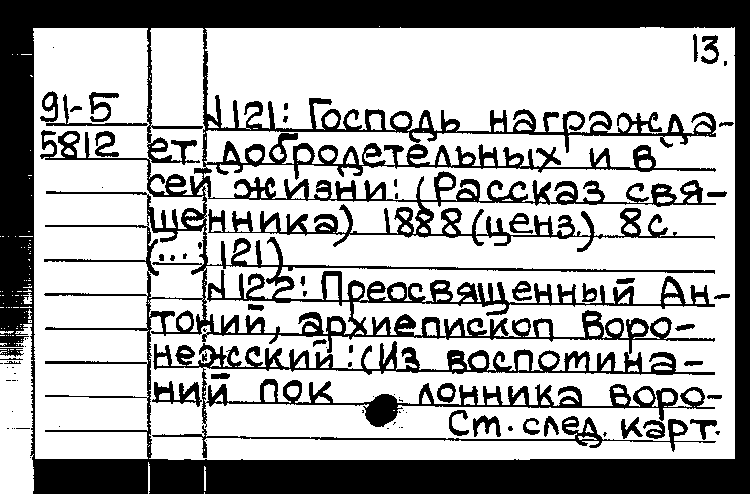 13.
91-5
5812
№121: Господь награжда-
ет добродетельных и в
сей жизни: (Рассказ свя-
щенника). 1888 (ценз.) 8с.
(...; 121).
№122: Преосвященный Ан-
тоний, архиепископ Воро-
нежский: (Из воспотина-
ний пок лонника воро-
См. след. карт.